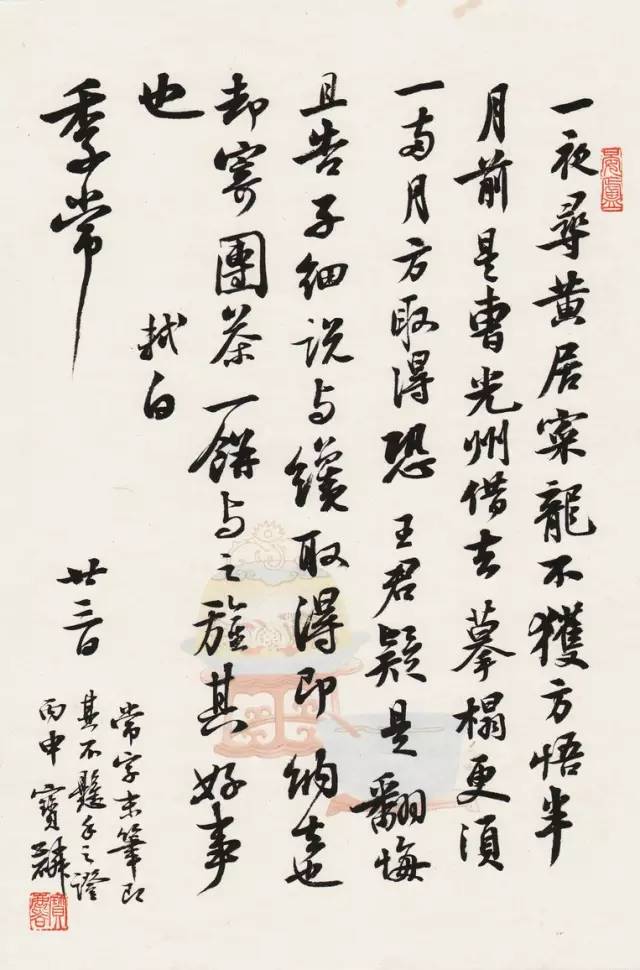 一夜尋黄居寀龍不獲方悟半
月前是曹光州借去摹榻更須
一兩月方取得恐王君疑是翻悔
且告子細説与纔取得即納去也
却寄團茶一餅与之旌其好事
也
軾白
季常
廿三日
常字末筆即
其不懸手之證
丙申寶麟